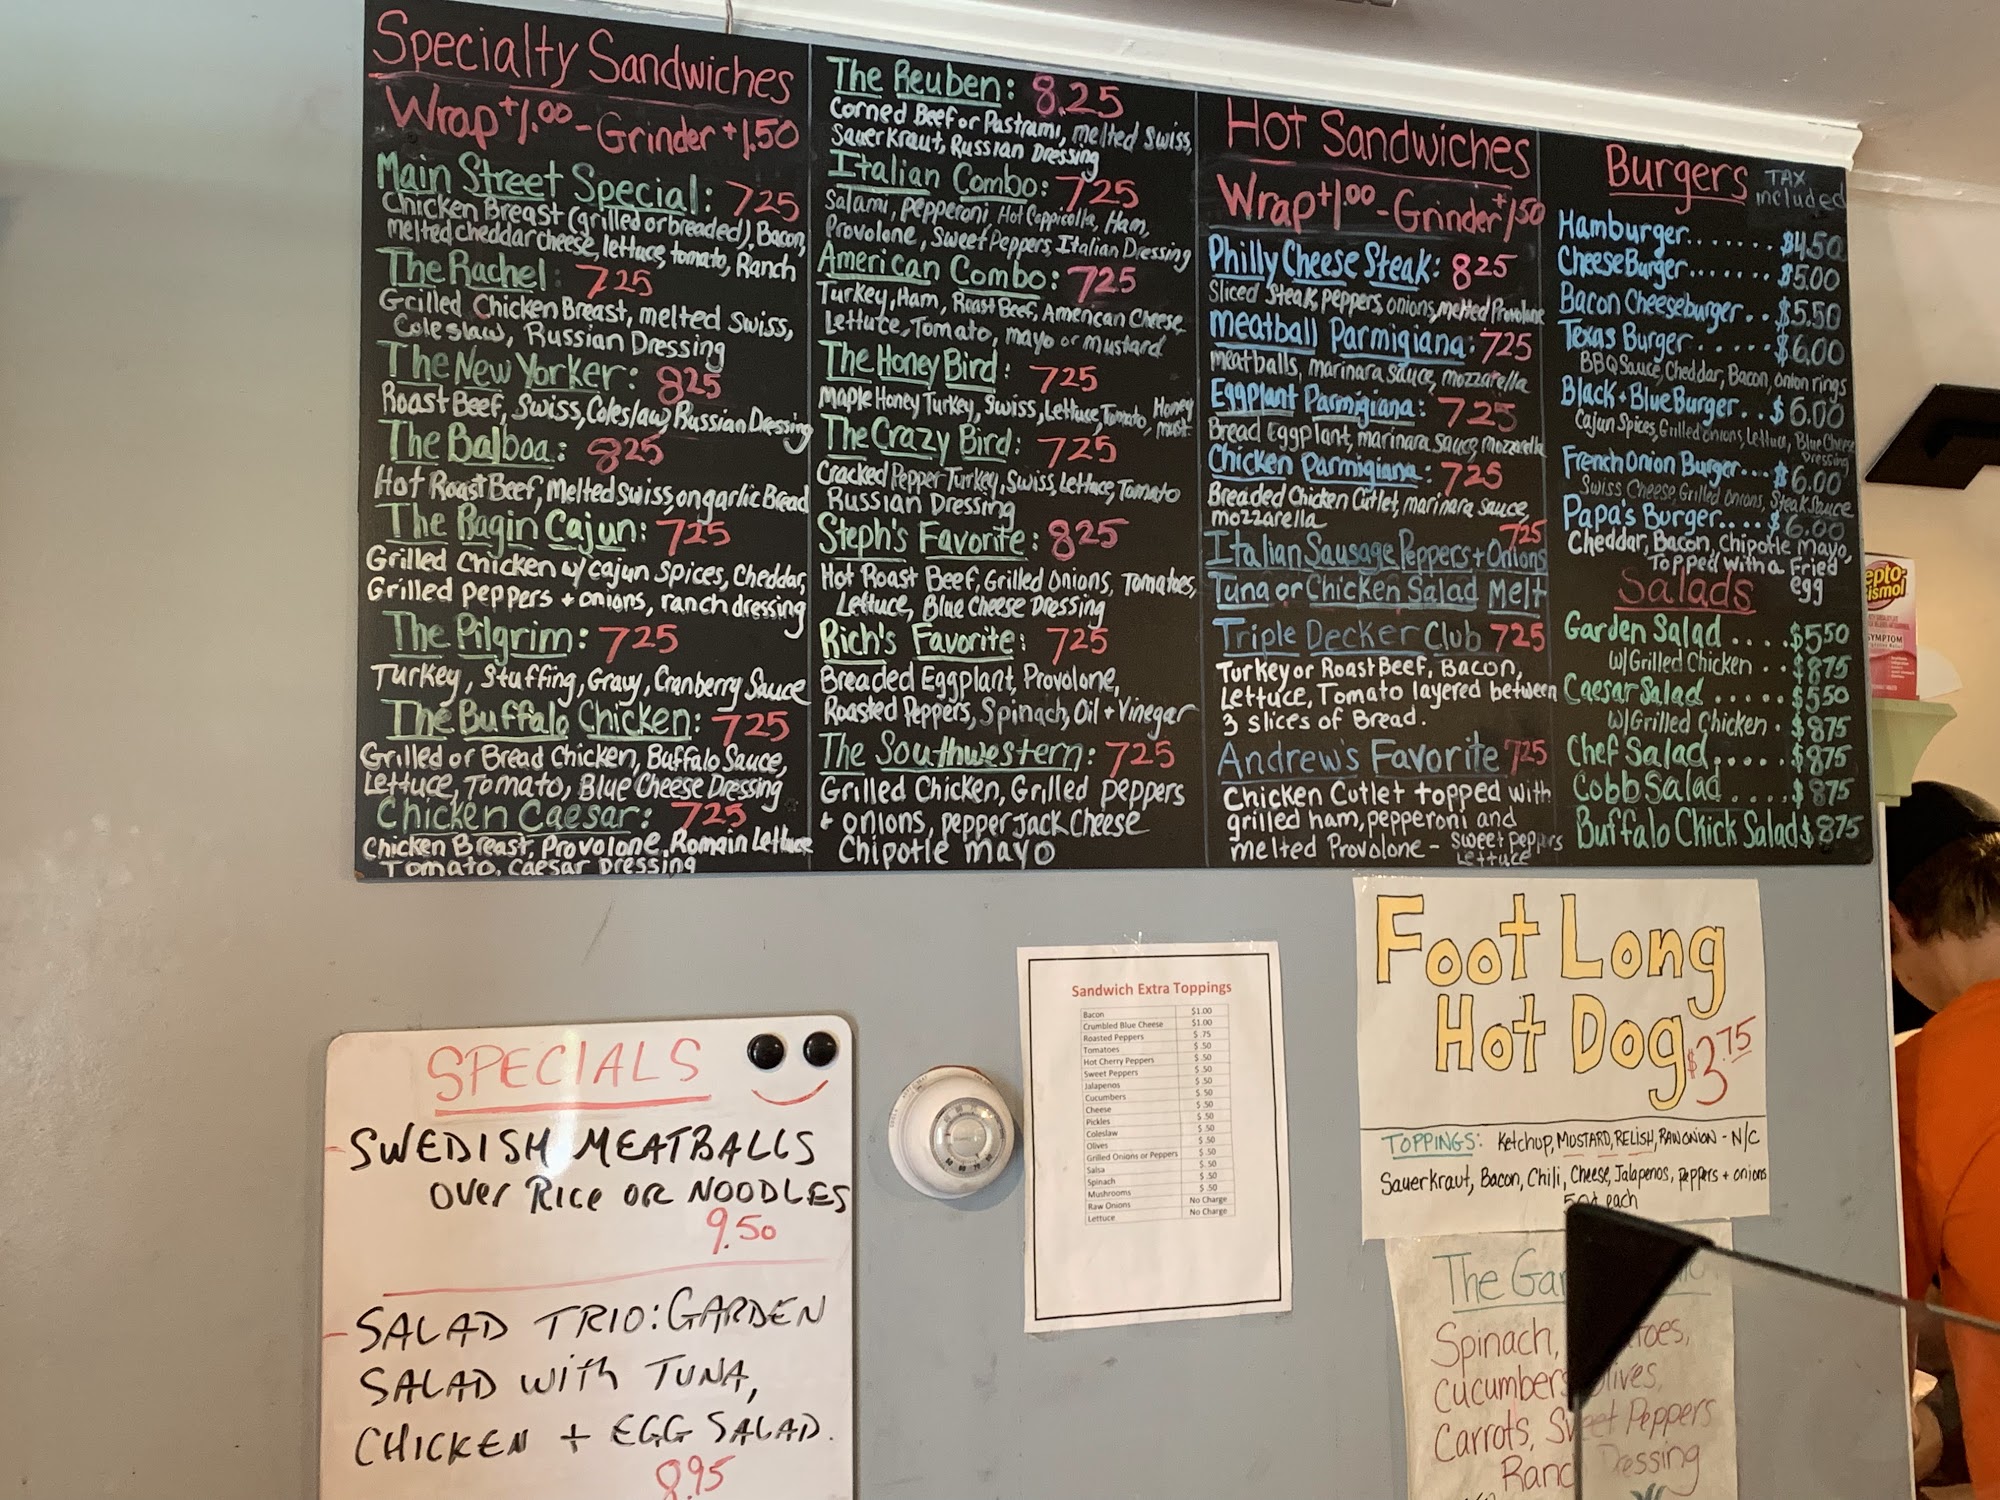 Specialty Sandwiches
Wrap +1.00 - Grinder +1.50
Main Street Special: 725
Chicken Breast (grilled or breaded), Bacon,
melted cheddar cheese, lettuce, tomato, Ranch
The Rachel: 725
Grilled Chicken Breast, melted Swiss,
Coleslaw, Russian Dressing
The New Yorker: 825
Roast Beef, Swiss, Coleslaw, Russian Dressing
The Balboa: 825
Hot Roast Beef, Melted Swiss, on garlic Bread
The Ragin Cajun: 725
Grilled Chicken w/ cajun spices, Cheddar,
Grilled peppers + onions, ranch dressing
The Pilgrim: 725
Turkey, Stuffing, Gravy, Cranberry Sauce
The Buffalo Chicken: 725
Grilled or Bread Chicken, Buffalo Sauce,
Lettuce, Tomato, Blue Cheese Dressing
Chicken Caesar: 725
Chicken Breast, Provolone, Romain Lettuce
Tomato, Caesar Dressing
The Reuben: 8.25
Corned Beef or Pastrami, melted Swiss,
Sauerkraut, Russian Dressing
Italian Combo: 725
Salami, pepperoni, Hot Cappicolla, Ham,
Provolone, Sweet Peppers, Italian Dressing
American Combo: 725
Turkey, Ham, Roast Beef, American Cheese
Lettuce, Tomato, mayo or mustard
The Honey Bird: 725
Maple Honey Turkey, Swiss, Lettuce, Tomato, Honey
must.
The Crazy Bird: 725
Cracked Pepper Turkey, Swiss, Lettuce, Tomato
Russian Dressing
Steph's Favorite: 825
Hot Roast Beef, Grilled Onions, Tomatoes,
Lettuce, Blue Cheese Dressing
Rich's Favorite: 725
Breaded Eggplant, Provolone,
Roasted Peppers, Spinach, Oil + Vinegar
The Southwestern: 725
Grilled Chicken, Grilled peppers
+ onions, pepper jack Cheese
Chipotle mayo
Hot Sandwiches
Wrap +1.00 - Grinder +1.50
Philly Cheese Steak: 825
Sliced Steak, peppers, onions, melted Provolone
Meatball Parmigiana: 725
meatballs, marinara sauce, mozzarella
Eggplant Parmigiana: 725
Bread Eggplant, marinara sauce, mozzarella
Chicken Parmigiana: 725
Breaded Chicken Cutlet, marinara sauce,
mozzarella
725
Italian Sausage Peppers + Onions
Tuna or Chicken Salad Melt
Triple Decker Club 725
Turkey or Roast Beef, Bacon,
Lettuce, Tomato layered between
3 slices of Bread.
Andrew's Favorite 725
Chicken Cutlet topped with
grilled ham, pepperoni and
melted Provolone - sweet peppers
Lettuce
Burgers TAX
included
Hamburger....... $4.50
CheeseBurger....... $5.00
Bacon Cheeseburger.. $5.50
Texas Burger..... $6.00
BBQ Sauce, Cheddar, Bacon, onion rings
Black + Blue Burger.. $6.00
Cajun Spices, Grilled onions, Lettuce, Blue Cheese
Dressing
French Onion Burger... $6.00
Swiss Cheese, Grilled onions, Steak Sauce
Papa's Burger.... $6.00
Cheddar, Bacon, Chipotle mayo,
Topped with a Fried
egg
Salads
Garden Salad .... $550
w/ Grilled Chicken .. $875
Caesar Salad ..... $550
w/ Grilled Chicken . $875
Chef Salad ..... $875
Cobb Salad .... $875
Buffalo Chick Salad $875
epto-
ismol
SYMPTOM
Foot Long
Hot Dog $3.75
TOPPINGS: Ketchup, MUSTARD, RELISH, RAW ONION - N/C
Sauerkraut, Bacon, Chili, Cheese, Jalapenos, peppers + onions
50¢ each
Sandwich Extra Toppings
Bacon $1.00
Crumbled Blue Cheese $1.00
Roasted Peppers $ .75
Tomatoes $ .50
Hot Cherry Peppers $ .50
Sweet Peppers $ .50
Jalapenos $ .50
Cucumbers $ .50
Cheese $ .50
Pickles $ .50
Coleslaw $ .50
Olives $ .50
Grilled Onions or Peppers $ .50
Salsa $ .50
Spinach $ .50
Mushrooms $ .50
Raw Onions No Charge
Lettuce No Charge
SPECIALS
- SWEDISH MEATBALLS
OVER RICE OR NOODLES
9.50
- SALAD TRIO: GARDEN
SALAD WITH TUNA,
CHICKEN + EGG SALAD.
8.95
The Gar
Spinach, toes,
Cucumbers, olives,
Carrots, Sweet Peppers
Ranc Dressing